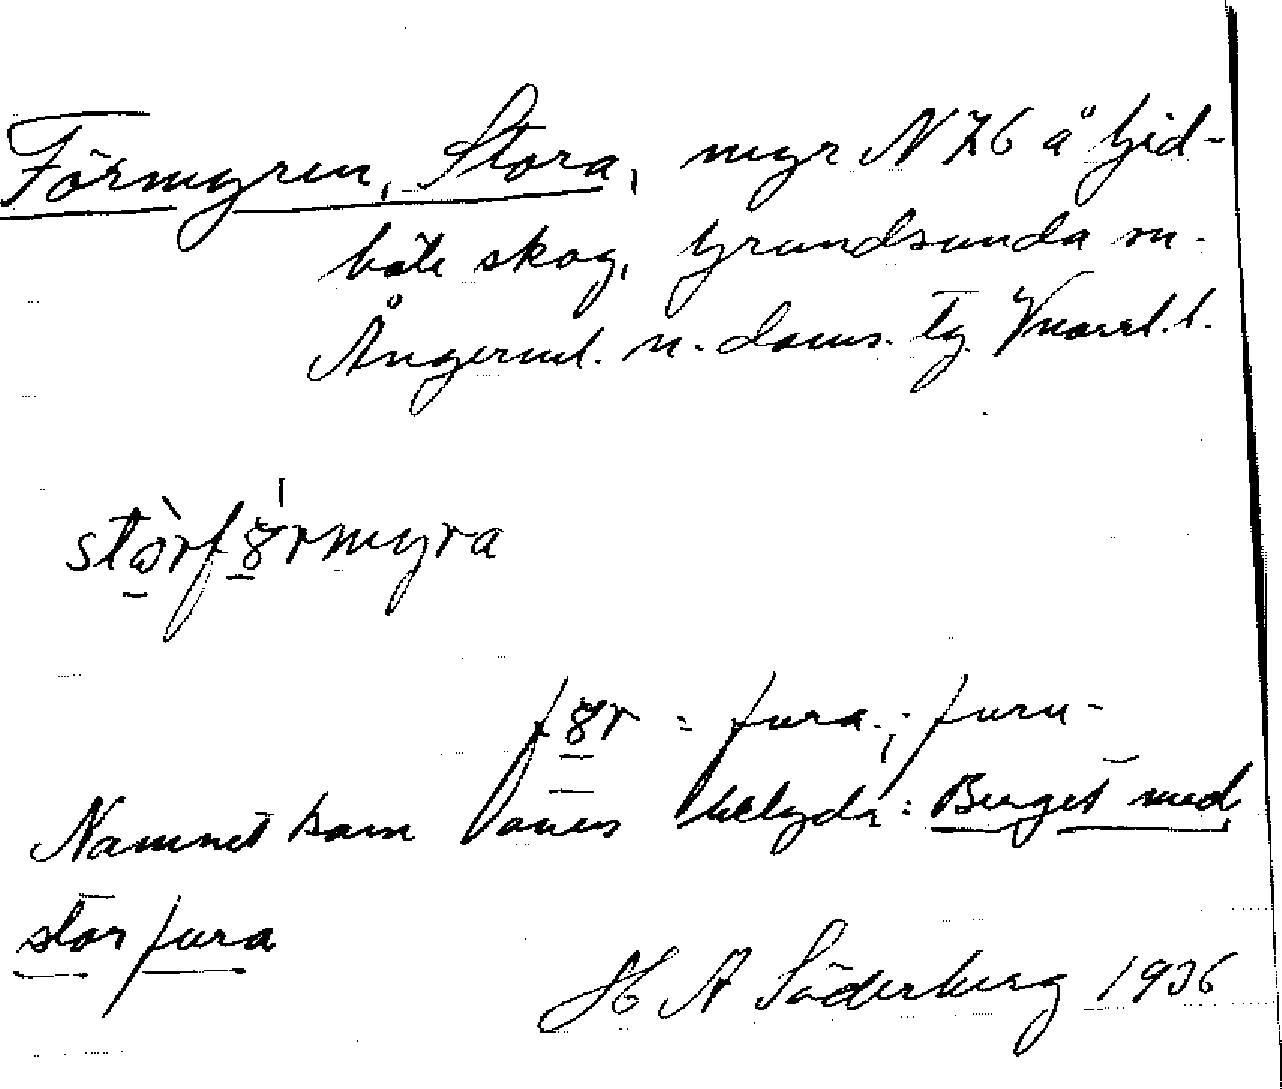 Förmyren, Stora, myr N 26 å Gid-
böle skog, Grundsunda sn.
Ångerml. n. doms. tg. Vnorrl. l.
stòrförmyra
för = fura; furu-
Namnet kan anses betyda: Berget med
stor fura
H A Söderberg 1936